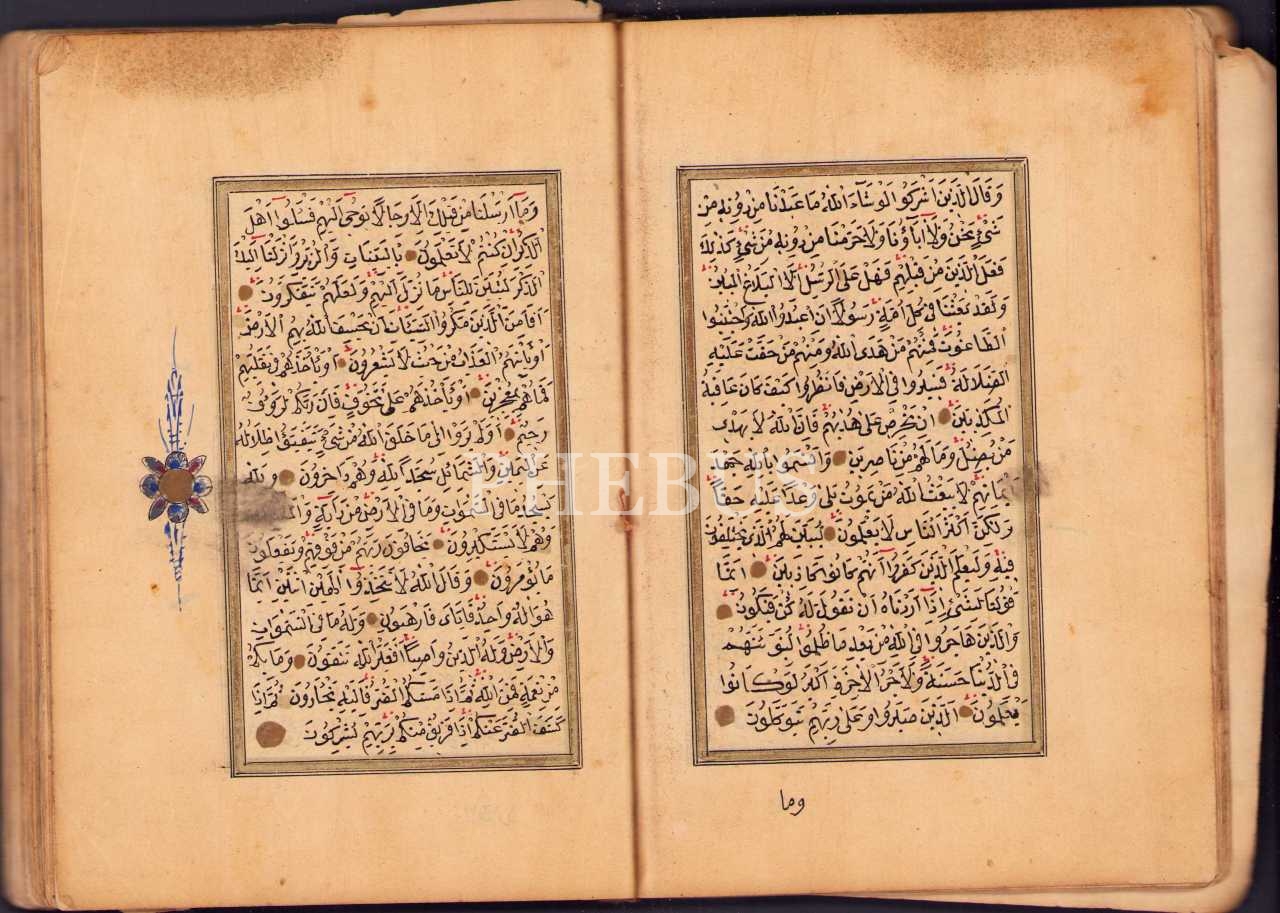 وَقَالَ الَّذِينَ اَشْرَكُوا لَوْ شَآءَ اللّٰهُ مَا عَبَدْنَا مِنْ دُونِهِ مِنْ
شَيْءٍ نَحْنُ وَلَا اٰبَآؤُنَا وَلَا حَرَّمْنَا مِنْ دُونِهِ مِنْ شَيْءٍ كَذٰلِكَ
فَعَلَ الَّذِينَ مِنْ قَبْلِهِمْ فَهَلْ عَلَى الرُّسُلِ اِلَّا الْبَلَاغُ الْمُبِينُ
وَلَقَدْ بَعَثْنَا فِي كُلِّ اُمَّةٍ رَسُولًا اَنِ اعْبُدُوا اللّٰهَ وَاجْتَنِبُوا
الطَّاغُوتَ فَمِنْهُمْ مَنْ هَدَى اللّٰهُ وَمِنْهُمْ مَنْ حَقَّتْ عَلَيْهِ
الضَّلَالَةُ فَسِيرُوا فِي الْاَرْضِ فَانْظُرُوا كَيْفَ كَانَ عَاقِبَةُ
الْمُكَذِّبِينَ اِنْ تَحْرِصْ عَلٰى هُدٰيهُمْ فَاِنَّ اللّٰهَ لَا يَهْدِي
مَنْ يُضِلُّ وَمَا لَهُمْ مِنْ نَاصِرِينَ وَاَقْسَمُوا بِاللّٰهِ جَهْدَ
اَيْمَانِهِمْ لَا يَبْعَثُ اللّٰهُ مَنْ يَمُوتُ بَلٰى وَعْدًا عَلَيْهِ حَقًّا
وَلٰكِنَّ اَكْثَرَ النَّاسِ لَا يَعْلَمُونَ لِيُبَيِّنَ لَهُمُ الَّذِي يَخْتَلِفُونَ
فِيهِ وَلِيَعْلَمَ الَّذِينَ كَفَرُوا اَنَّهُمْ كَانُوا كَاذِبِينَ اِنَّمَا
قَوْلُنَا لِشَيْءٍ اِذَا اَرَدْنَاهُ اَنْ نَقُولَ لَهُ كُنْ فَيَكُونُ
وَالَّذِينَ هَاجَرُوا فِي اللّٰهِ مِنْ بَعْدِ مَا ظُلِمُوا لَنُبَوِّئَنَّهُمْ
فِي الدُّنْيَا حَسَنَةً وَلَاَجْرُ الْاٰخِرَةِ اَكْبَرُ لَوْ كَانُوا
يَعْلَمُونَ الَّذِينَ صَبَرُوا وَعَلٰى رَبِّهِمْ يَتَوَكَّلُونَ
وما
وَمَآ اَرْسَلْنَا مِنْ قَبْلِكَ اِلَّا رِجَالًا نُوحِي اِلَيْهِمْ فَسْـَٔلُوا اَهْلَ
الذِّكْرِ اِنْ كُنْتُمْ لَا تَعْلَمُونَ بِالْبَيِّنَاتِ وَالزُّبُرِ وَاَنْزَلْنَا اِلَيْكَ
الذِّكْرَ لِتُبَيِّنَ لِلنَّاسِ مَا نُزِّلَ اِلَيْهِمْ وَلَعَلَّهُمْ يَتَفَكَّرُونَ
اَفَاَمِنَ الَّذِينَ مَكَرُوا السَّيِّئَاتِ اَنْ يَخْسِفَ اللّٰهُ بِهِمُ الْاَرْضَ
اَوْ يَأْتِيَهُمُ الْعَذَابُ مِنْ حَيْثُ لَا يَشْعُرُونَ اَوْ يَأْخُذَهُمْ فِي تَقَلُّبِهِمْ
فَمَا هُمْ بِمُعْجِزِينَ اَوْ يَأْخُذَهُمْ عَلٰى تَخَوُّفٍ فَاِنَّ رَبَّكُمْ لَرَؤُفٌ
رَحِيمٌ اَوَلَمْ يَرَوْا اِلٰى مَا خَلَقَ اللّٰهُ مِنْ شَيْءٍ يَتَفَيَّؤُا ظِلَالُهُ
عَنِ الْيَمِينِ وَالشَّمَآئِلِ سُجَّدًا لِلّٰهِ وَهُمْ دَاخِرُونَ وَلِلّٰهِ
يَسْجُدُ مَا فِي السَّمٰوَاتِ وَمَا فِي الْاَرْضِ مِنْ دَآبَّةٍ
وَهُمْ لَا يَسْتَكْبِرُونَ يَخَافُونَ رَبَّهُمْ مِنْ فَوْقِهِمْ وَيَفْعَلُونَ
مَا يُؤْمَرُونَ وَقَالَ اللّٰهُ لَا تَتَّخِذُوا اِلٰهَيْنِ اثْنَيْنِ اِنَّمَا
هُوَ اِلٰهٌ وَاحِدٌ فَاِيَّايَ فَارْهَبُونِ وَلَهُ مَا فِي السَّمٰوَاتِ
وَالْاَرْضِ وَلَهُ الدِّينُ وَاصِبًا اَفَغَيْرَ اللّٰهِ تَتَّقُونَ وَمَا بِكُمْ
مِنْ نِعْمَةٍ فَمِنَ اللّٰهِ ثُمَّ اِذَا مَسَّكُمُ الضُّرُّ فَاِلَيْهِ تَجْاَرُونَ ثُمَّ اِذَا
كَشَفَ الضُّرَّ عَنْكُمْ اِذَا فَرِيقٌ مِنْكُمْ بِرَبِّهِمْ يُشْرِكُونَ
PHEBUS